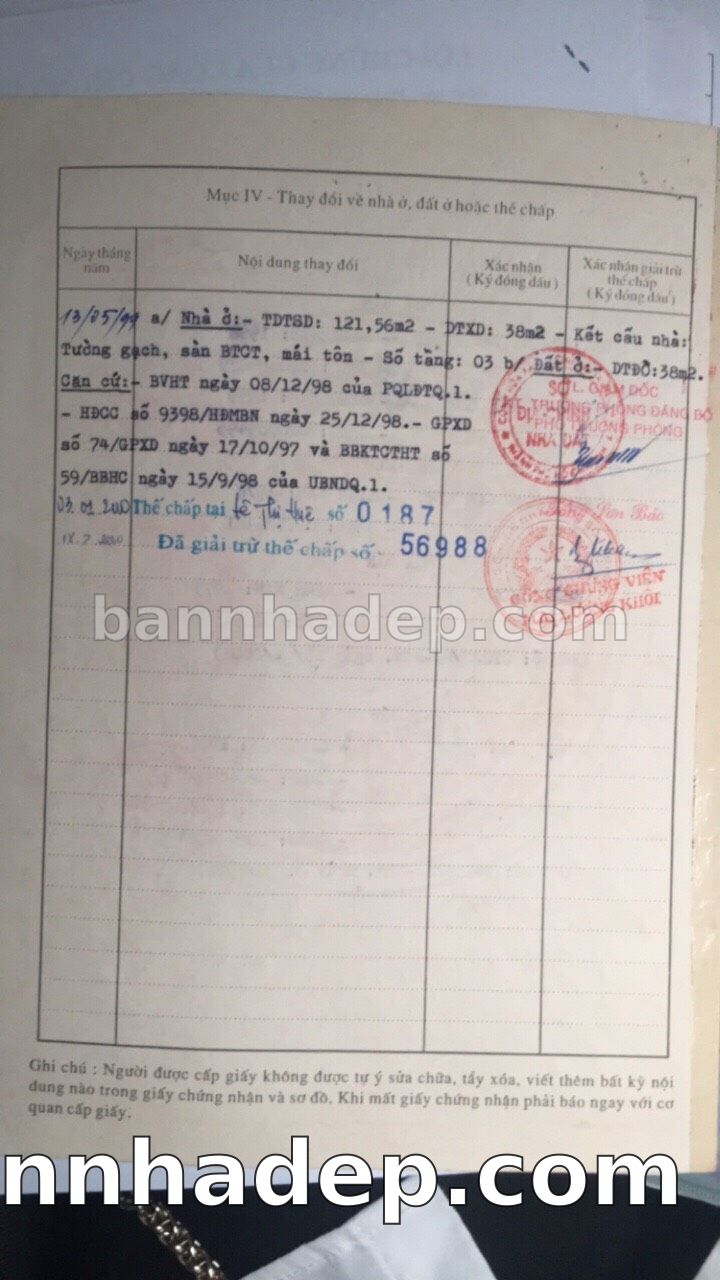 Mục IV - Thay đổi về nhà ở, đất ở hoặc thế chấp
Ngày tháng năm
Nội dung thay đổi
Xác nhận (Ký đóng dấu)
Xác nhận giải trừ thế chấp (Ký đóng dấu)
13/05/99 a/ Nhà ở:- TDTSD: 121,56m2 - DTXD: 38m2 - Kết cấu nhà:
Tường gạch, sàn BTCT, mái tôn - Số tầng: 03 b/ Đất ở:- DTĐO:38m2.
Căn cứ:- BVHT ngày 08/12/98 của PQLĐTQ.1.
- HĐCC số 9398/HĐMBN ngày 25/12/98.- GPXD
số 74/GPXD ngày 17/10/97 và BBKTCTHT số
59/BBHC ngày 15/9/98 của UBNDQ.1.
GIÁM ĐỐC
TRƯỞNG PHÒNG ĐĂNG BỘ
PHÓ TRƯỞNG PHÒNG
NHÀ ĐẤT
Thế chấp tại Lê Thị Huê số 0187
Đã giải trừ thế chấp số 56988
CÔNG CHỨNG VIÊN
bannhadep.com
Ghi chú : Người được cấp giấy không được tự ý sửa chữa, tẩy xóa, viết thêm bất kỳ nội
dung nào trong giấy chứng nhận và sơ đồ. Khi mất giấy chứng nhận phải báo ngay với cơ
quan cấp giấy.
nnhadep.com